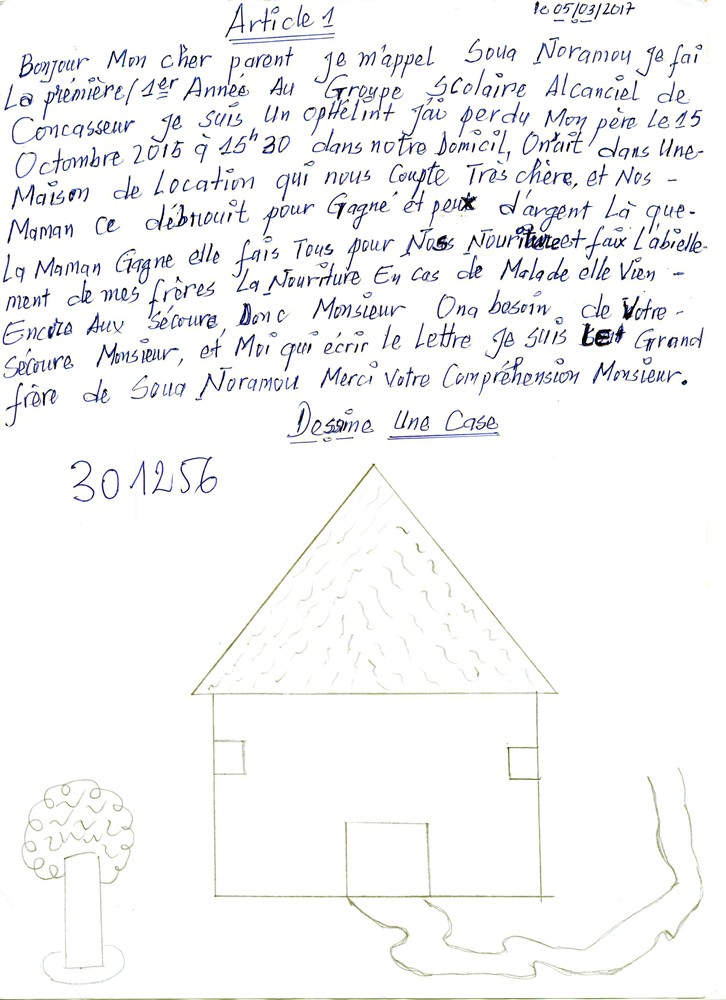 le 05/03/2017
Article 1
Bonjour Mon cher parent je m'appel Soua Noramou je fai
La première/1er Année Au Groupe Scolaire Alcanciel de
Concasseur je suis Un opHélint j'ai perdu Mon père Le 15
Octombre 2015 à 15h30 dans notre Domicil, On'ait dans Une-
Maison de Location qui nous Coupte Très chère, et Nos -
Maman Ce débrouit pour Gagné et peux d'argent Là que-
La Maman Gagne elle fais Tous pour Nos Nourriture et faix L'abielle-
ment de mes frères La Nourriture En cas de Malade elle Vien -
Encore Aux Sécoure, Donc Monsieur Ona besoin de Votre -
Sécoure Monsieur, et Moi qui écrir le Lettre je suis Let Grand
frère de Soua Noramou Merci Votre Compréhension Monsieur.
Dessine Une Case
301256